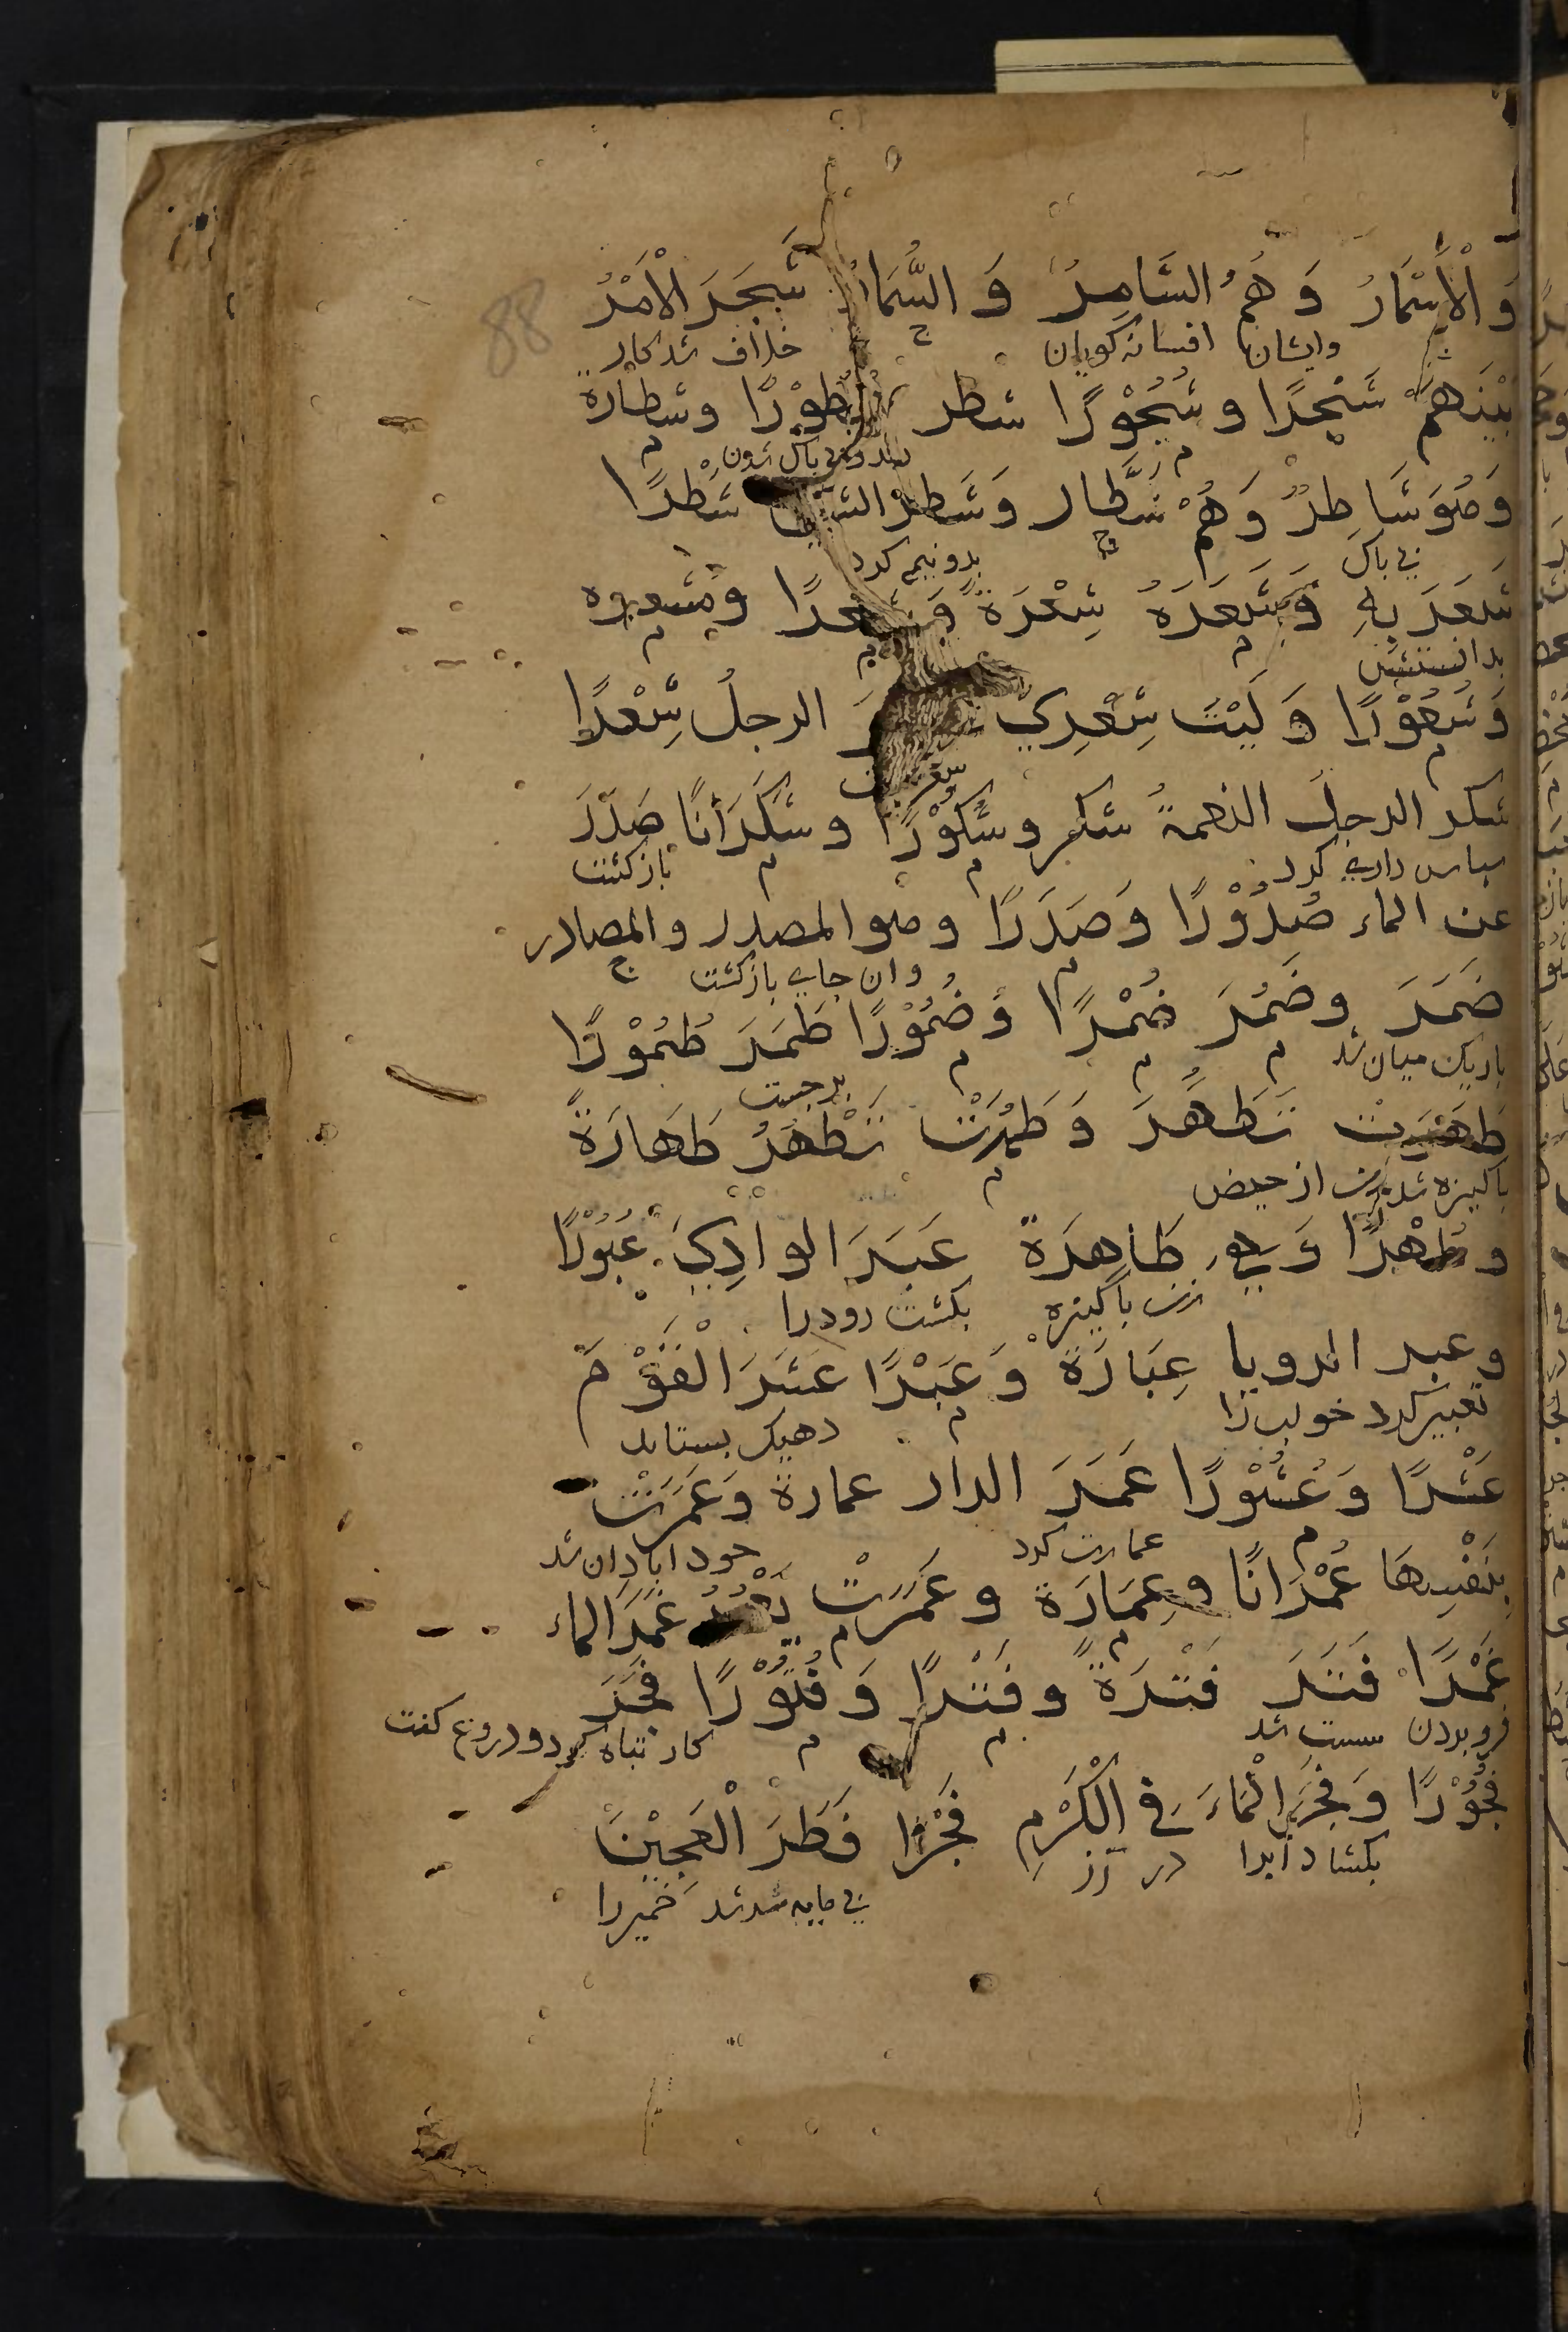 88
وَالْأَسْمَارُ وَهُمُ السَّامِرُ وَ السُّمَارُ شَجَرَ الْأَمْرُ
وایشان افسانه کویان خلاف شد کار
بَيْنَهُمْ شَجْرًا و شُجُوْرًا شطر شُطُوْرًا وشطارة
بی باک شدن
وَهُوَ شَاطِرٌ وَهُمْ شُطَّار وَشَطَرَ الشَّيْءَ شَطْرًا
بی باک بدو نیم کرد
شَعَرَ بِهِ وَشَعَرَهُ شِعْرَةً وَشِعْرًا وَمَشعوره
بدانستش
وَشُعُوْرًا وَ لَيْتَ شِعْرِي الرجلُ شِعْرًا
شعر گفت
شكر الرجلُ النعمةَ شكر وشُكُوْرًا وشُكْرَانًا صَدَرَ
سپاس داری کرد بازکشت
عن الماء صُدُوْرًا وَصَدَرًا وهو المصدر والمصادر
وان جای بازکشت
ضَمَرَ وضَمُرَ ضُمْرًا وَضُمُوْرًا طَمَرَ طُمُوْرًا
باریک میان شد برجست
طَهَرَتْ تَطَهَّرَ وَطَهُرَتْ تَطْهُرُ طَهَارَةً
پاکیزه شد زن از حیض
وطُهْرًا وَهِيَ طَاهِرَة عَبَرَ الوادِيَ عُبُوْرًا
زن پاکیزه بکشت رود را
وعبر الرويا عِبَارَةً وَعَبْرًا عَشَرَ الْقَوْمَ
تعبیر کرد خواب را دهیک بستاند
عَشْرًا وَعُشُوْرًا عَمَرَ الدار عمارة وَعَمَرَتْ
عمارت کرد خود ابادان شد
بِنَفْسِهَا عُمْرَانًا وعِمَارَة وعَمَرَتْ غَمَرَ الماء
غَمْرًا فَتَرَ فَتْرَةً وفَتْرًا وَفُتُوْرًا فَجَرَ
فرو بردن سست شد کار تباه کرد و دروغ کفت
فُجُوْرًا وَفَجَرَ الْمَاءَ فِي الْكَرْمِ فَجْرًا فَطَرَ الْعَجِيْنَ
بکشاد آبرا در رز
بی مایه شد خمیر را